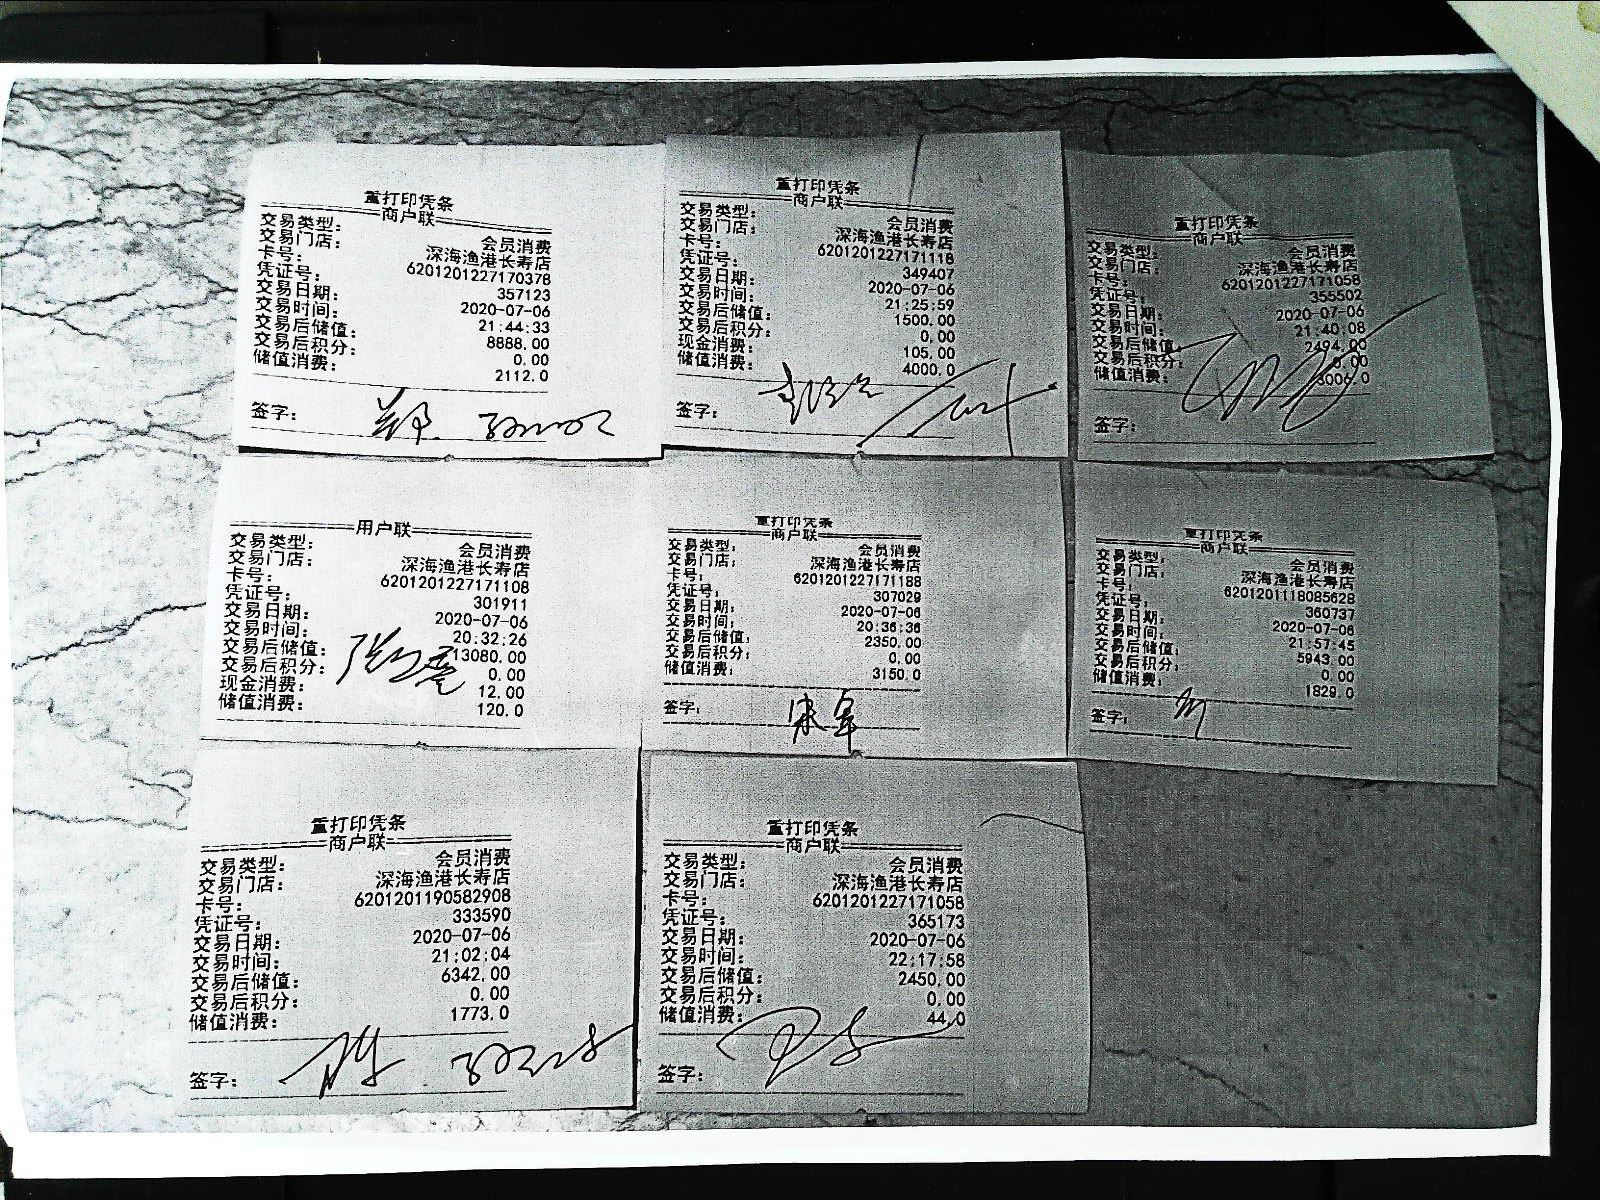 重打印凭条
商户联
交易类型: 会员消费
交易门店: 深海渔港长寿店
卡号: 6201201227170378
凭证号: 357123
交易日期: 2020-07-06
交易时间: 21:44:33
交易后储值: 8888.00
交易后积分: 0.00
储值消费: 2112.0
签字: 郑
重打印凭条
商户联
交易类型: 会员消费
交易门店: 深海渔港长寿店
卡号: 6201201227171118
凭证号: 349407
交易日期: 2020-07-06
交易时间: 21:25:59
交易后储值: 1500.00
交易后积分: 0.00
现金消费: 105.00
储值消费: 4000.0
签字:
重打印凭条
商户联
交易类型: 会员消费
交易门店: 深海渔港长寿店
卡号: 6201201227171058
凭证号: 355502
交易日期: 2020-07-06
交易时间: 21:40:08
交易后储值: 2494.00
交易后积分: 0.00
储值消费: 3006.0
签字:
用户联
交易类型: 会员消费
交易门店: 深海渔港长寿店
卡号: 6201201227171108
凭证号: 301911
交易日期: 2020-07-06
交易时间: 20:32:26
交易后储值: 13080.00
交易后积分: 0.00
现金消费: 12.00
储值消费: 120.0
重打印凭条
商户联
交易类型: 会员消费
交易门店: 深海渔港长寿店
卡号: 6201201227171188
凭证号: 307029
交易日期: 2020-07-06
交易时间: 20:36:36
交易后储值: 2350.00
交易后积分: 0.00
储值消费: 3150.0
签字:
重打印凭条
商户联
交易类型: 会员消费
交易门店: 深海渔港长寿店
卡号: 6201201118085628
凭证号: 360737
交易日期: 2020-07-06
交易时间: 21:57:45
交易后储值: 5943.00
交易后积分: 0.00
储值消费: 1829.0
签字:
重打印凭条
商户联
交易类型: 会员消费
交易门店: 深海渔港长寿店
卡号: 6201201190582908
凭证号: 333590
交易日期: 2020-07-06
交易时间: 21:02:04
交易后储值: 6342.00
交易后积分: 0.00
储值消费: 1773.0
签字:
重打印凭条
商户联
交易类型: 会员消费
交易门店: 深海渔港长寿店
卡号: 6201201227171058
凭证号: 365173
交易日期: 2020-07-06
交易时间: 22:17:58
交易后储值: 2450.00
交易后积分: 0.00
储值消费: 44.0
签字: